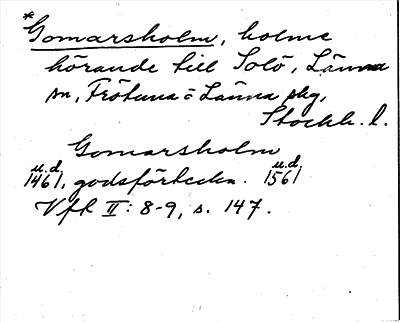 *Gomarsholm, holme
hörande till Solö, Länna
sn, Frötuna o Länna skg,
Stockh. l.
Gomarsholm
u.d. u.d.
1461, godsförteckn. 1561
Vfk II: 8-9, s. 147.